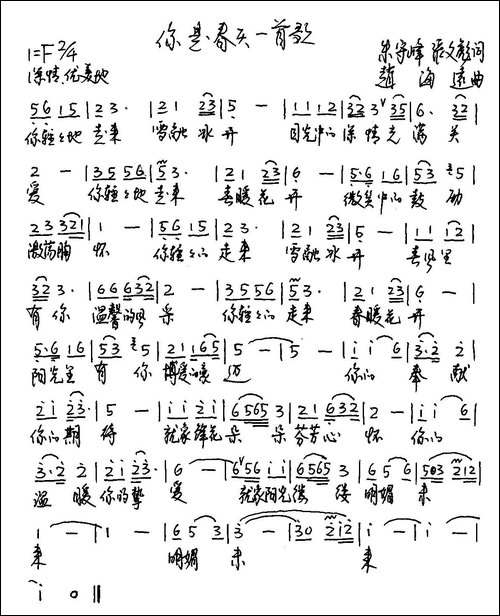 你是春天一首歌
1=F 2/4
深情.优美地
朱守峰 张文彪词
赵海远曲
5 6 1 5 | 2 3 · 2 1 2 3 | 5 – | 1 1 1 2 | 3 2 3 3 5 | 6 · 3 2 |
你轻轻地走来 雪融冰开 目光中的深情充满关
2 – | 3 5 5 6 | 5 3 · 2 1 2 3 | 6 – | 5 · 6 1 6 | 5 3 5 |
爱 你轻轻地走来 春暖花开 微笑中的鼓励
2 3 3 2 1 | 1 – | 5 6 1 5 | 2 3 · | 2 1 2 3 | 5 – | 1 1 1 2 |
激荡胸怀 你轻轻的走来 雪融冰开 春风里
3 2 3 · | 6 6 6 3 2 | 2 – | 3 5 5 6 | 5 3 · | 2 1 2 3 | 6 – |
有你温馨的风采 你轻轻的走来 春暖花开
5 · 6 1 6 | 5 3 5 | 2 1 1 6 5 | 5 – | 5 – | i i 6 | 3 · 2 2 |
阳光里有你博爱 迈 你的奉献
2 i 2 3 · | 5 – | i i 2 i | 6 5 6 5 3 | 2 1 6 3 2 | 2 – | i i 6 |
你的期待 就象鲜花朵朵芬芳心怀 你的
3 · 2 2 | 2 i 2 3 · | 6 – | 6 5 6 i i | 6 5 6 5 3 | 6 5 6 | 5 0 3 2 1 2 |
温暖你的挚爱 就象阳光缕缕明媚未
1 – | 1 – | 6 5 3 | 3 – | 3 0 2 i 2 | i – | i – |
来 明媚未来
i 0 ‖